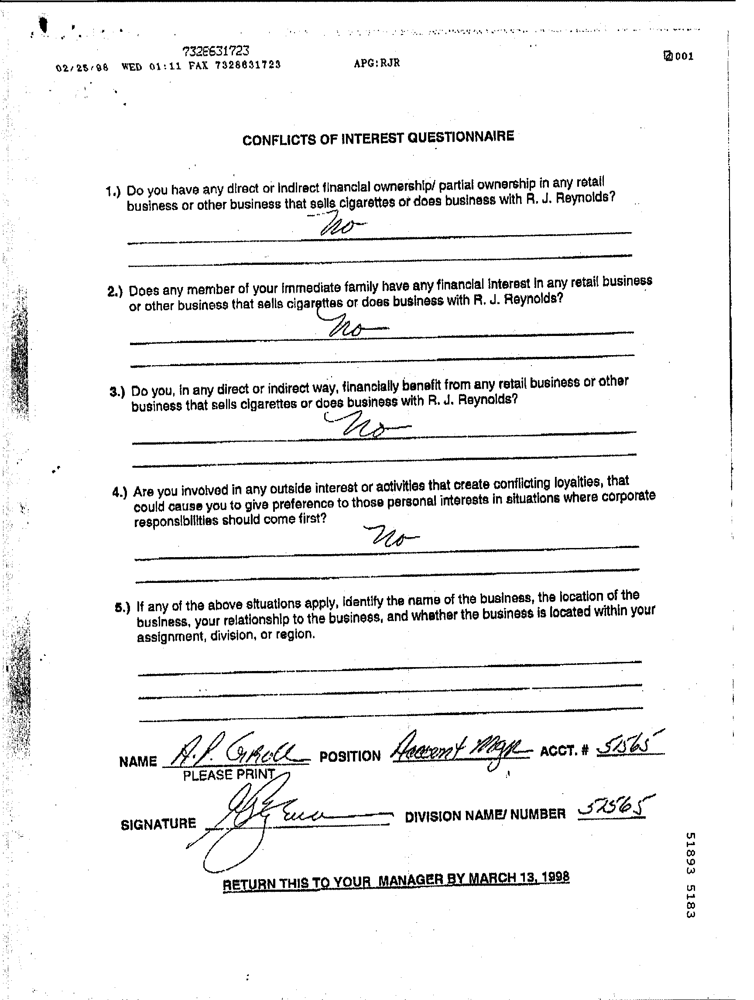 7328631723
02/25/98 WED 01:11 FAX 7328631723 APG:RJR 001
CONFLICTS OF INTEREST QUESTIONNAIRE
1.) Do you have any direct or indirect financial ownership/ partial ownership in any retail
business or other business that sells cigarettes or does business with R. J. Reynolds?
No
2.) Does any member of your immediate family have any financial interest in any retail business
or other business that sells cigarettes or does business with R. J. Reynolds?
No
3.) Do you, in any direct or indirect way, financially benefit from any retail business or other
business that sells cigarettes or does business with R. J. Reynolds?
No
4.) Are you involved in any outside interest or activities that create conflicting loyalties, that
could cause you to give preference to those personal interests in situations where corporate
responsibilities should come first?
No
5.) If any of the above situations apply, identify the name of the business, the location of the
business, your relationship to the business, and whether the business is located within your
assignment, division, or region.
NAME A.P. POSITION Account Mgr ACCT. # 51565
PLEASE PRINT
SIGNATURE DIVISION NAME/ NUMBER 52565
RETURN THIS TO YOUR MANAGER BY MARCH 13, 1998
51893 5183